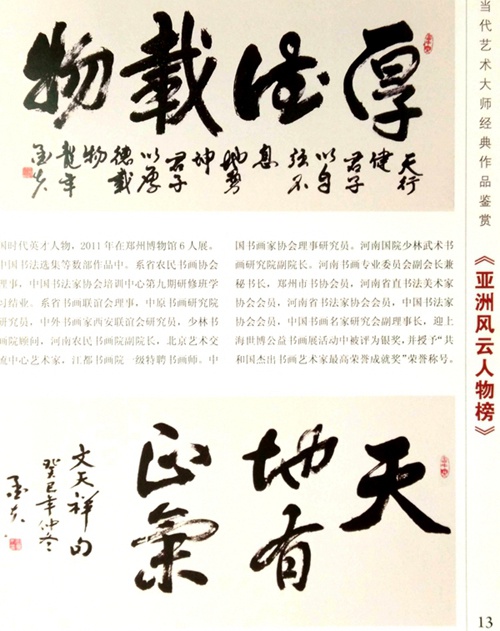 当代艺术大师经典作品鉴赏
《亚洲风云人物榜》
厚德載物
天行
健
君子
以自
强不
息
地勢
坤
君子
以厚
德載
物
龍年
国时代英才人物，2011年在郑州博物馆6人展。
中国书法选集等数部作品中。系省农民书画协会
理事，中国书法家协会培训中心第九期研修班学
习结业。系省书画联谊会理事，中原书画研究院
研究员，中外书画家西安联谊会研究员，少林书
画院顾问，河南农民书画院副院长，北京艺术交
流中心艺术家，江都书画院一级特聘书画师。中
国书画家协会理事研究员。河南国院少林武术书
画研究院副院长。河南书画专业委员会副会长兼
秘书长，郑州市书协会员，河南省直书法美术家
协会会员，河南省书法家协会会员，中国书法家
协会会员，中国书画名家研究会副理事长，迎上
海世博公益书画展活动中被评为银奖，并授予“共
和国杰出书画艺术家最高荣誉成就奖”荣誉称号。
天
地有
正氣
文天祥句
癸巳年仲冬
13